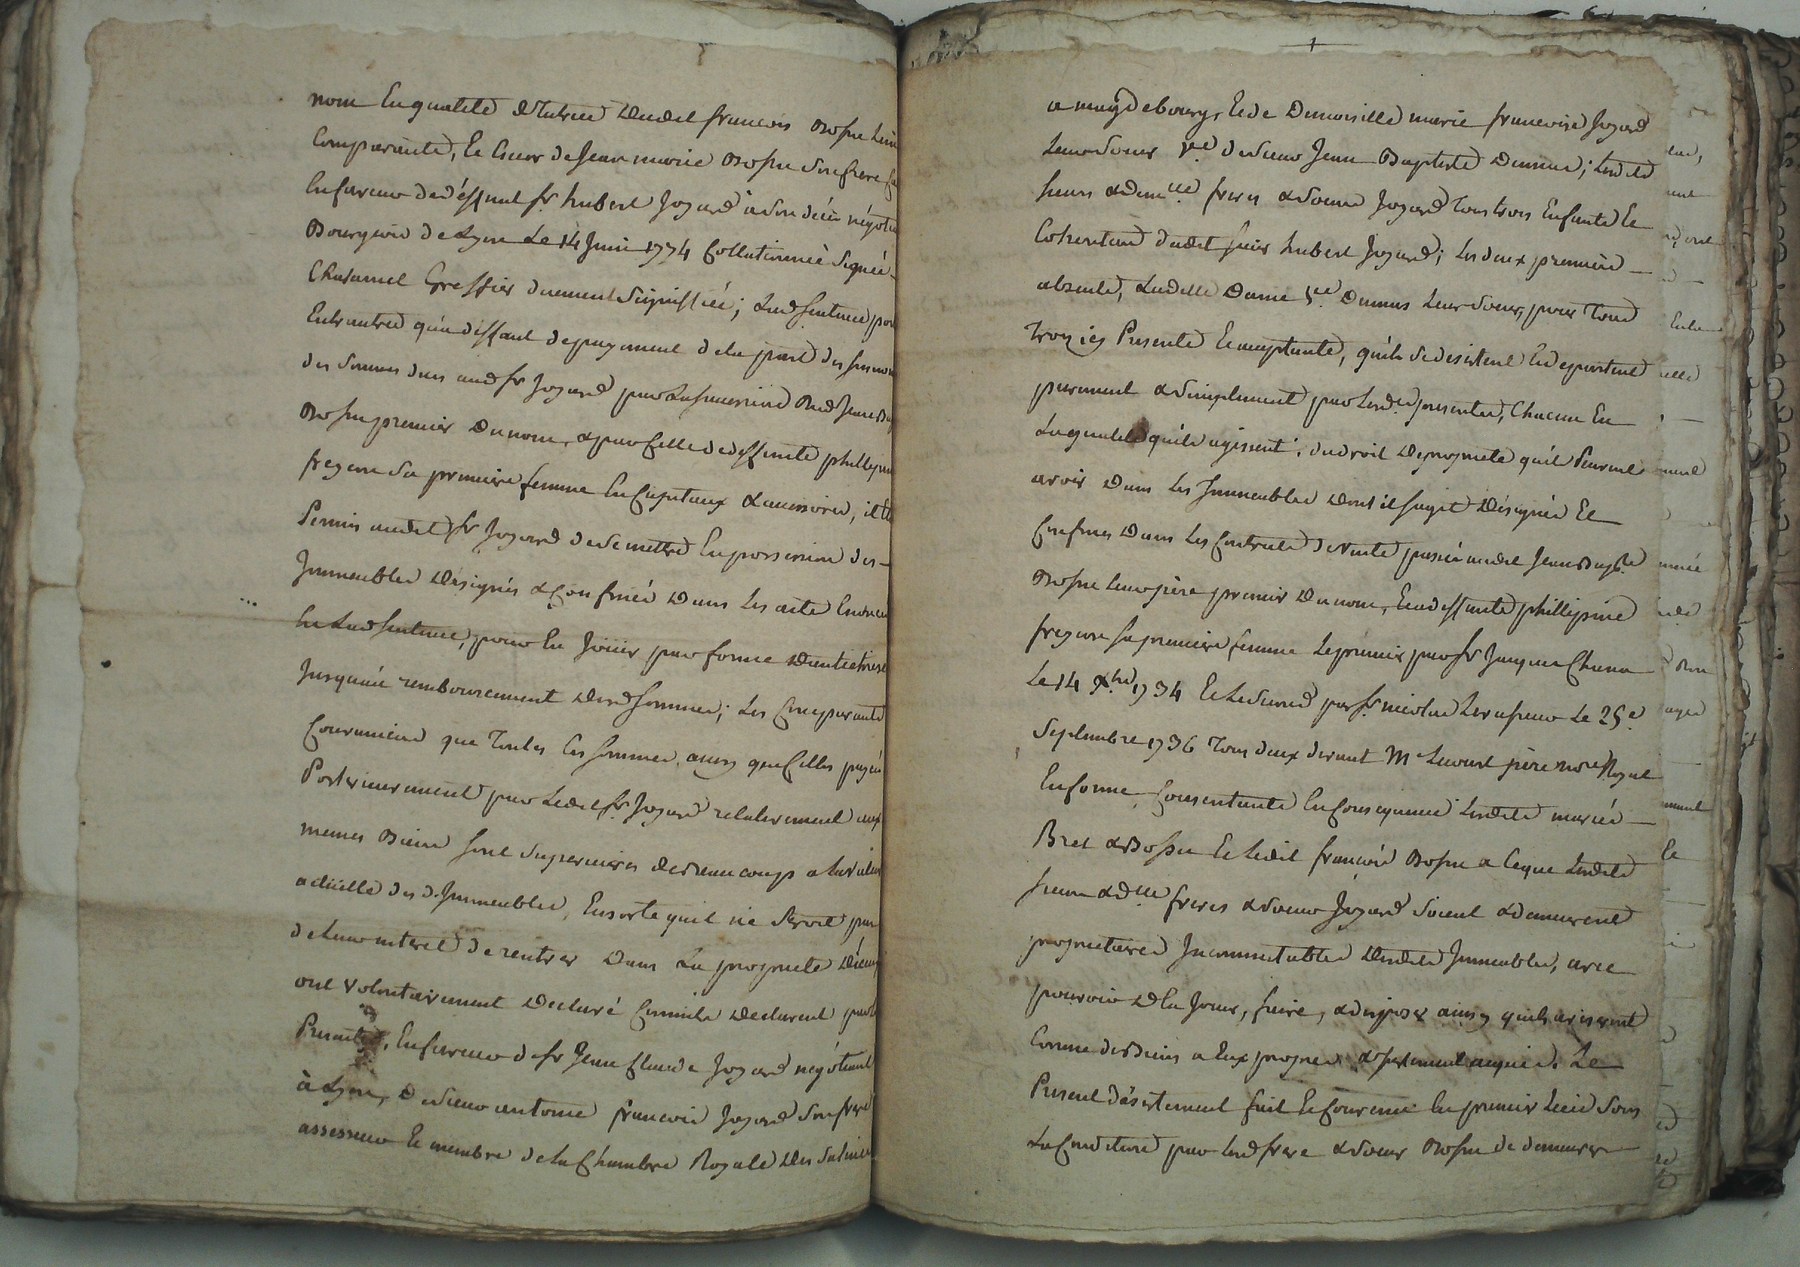 nom En qualité de tutrice dudit francois Bossu
Comparante, Et Encor de Jean marie Bossu son frere
En faveur de deffunt Sr. hubert Jogand à son décès négotiant
Bourgeois de Lyon Le 14 Juin 1774 Collationnée signée
Chasamel Greffier duement Signiffiée; Lad. Sentence
Entr'autres qu'a deffaut de payement de la part des susnommés
des sommes dues aud. Sr Jogand par La succession dud. Jean
Bossu premier du nom, & par Celle de deffunte phillipine
frejure sa premiere femme En Capitaux & accessoires, il est
Permis audit Sr Jogand de se mettre En possession des
Immeubles Désignés & Confinés Dans Les acte Enoncés
En Lad. sentence, pour En Jouir par forme D'antichrese
Jusqu'au remboursement desd. sommes; Les Comparants
Convenient que Toutes Ces sommes, ainsy que Celles payées
Posterieurement par Ledit Sr. Jogand relativement aux
memes Biens sont superieures de Beaucoup a La valeur
actuelle des d. Immeubles, Ensorte qu'il ne seroit pas
de Leur interet de rentrer Dans La propriete D'iceux
ont volontairement Declaré Comm'ils Declarent par Ces
Presentes, En faveur de Sr Jean Claude Jogand négotiant
à Lyon, De sieur antoine francois Jogand son frere
assesseur Et membre de La Chambre Royale Des salines
a magdebourg, Et de Demoiselle marie francoise Jogand
Leur soeur Ve. de sieur Jean Baptiste Dumas; Lesdits
sieurs & Demlle. freres & soeur Jogand Tous trois Enfants Et
Cohéritiers dudit sieur hubert Jogand; Les deux premiers
absents, Ladite Dame Ve. Dumas Leur soeur, pour Tous
Trois icy Presente Et acceptante, qu'ils se desistent Et departent
purement & simplement par Lesd. presentes, Chacun En
La qualité qu'ils agissent; du droit De propriete qu'ils Peuvent
avoir Dans Les Immeubles Dont il s'agit Désignés Et
Confinés Dans Les Contrats de Vente passés audit Jean Bapte.
Bossu Leur père premier Du nom, Et a deffunte phillipine
frejure sa premiere femme Le premier par Sr Jacques
Le 14 Xbre 1734 Et Le second par Sr. nicolas Le 25e
Septembre 1736 Tous deux devant Me Lecourt père nore. Royal
En forme, Consentants En Consequence Lesdits mariés
Bret & Bossu Et Ledit francois Bossu a Ceque Lesdits
sieurs & Dlle freres & soeur Jogand soient & demeurent
propriétaires Incommutables Desdits Immeubles, avec
pouvoir D'En Jouir, faire, & disposer ainsy qu'ils aviseront
Comme des Biens a Eux propres & justement acquis. Le
Present Désistement fait Et Convenu En premier Lieu Sous
La Condition par Lesd. frere & soeur Bossu de demeurer